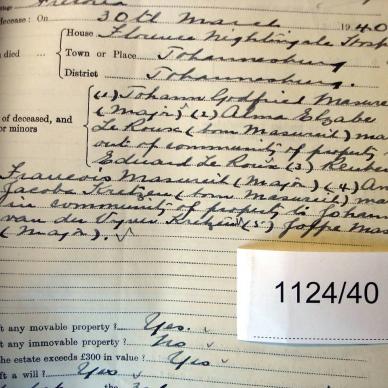 Pretoria
Decease: On 30th March 1940
House Florence Nightingale Hosp
n died Town or Place Johannesburg
District Johannesburg.
of deceased, and or minors
(1) Johann Godfried Masure
(Major) (2) Alma Elzabe
Le Roux (born Masureik) ma
out of community of property
Eduard Le Roux (3) Reuben
Francois Masureik (Major) (4) An
Jacoba Kretzen (born Masureik) ma
in community of property to Johan
van der Vyver Kretzen (5) Joffre Mas
(Major).
1124/40
ft any movable property? Yes.
ft any immovable property? No
the estate exceeds £300 in value? Yes
ft a will? Yes